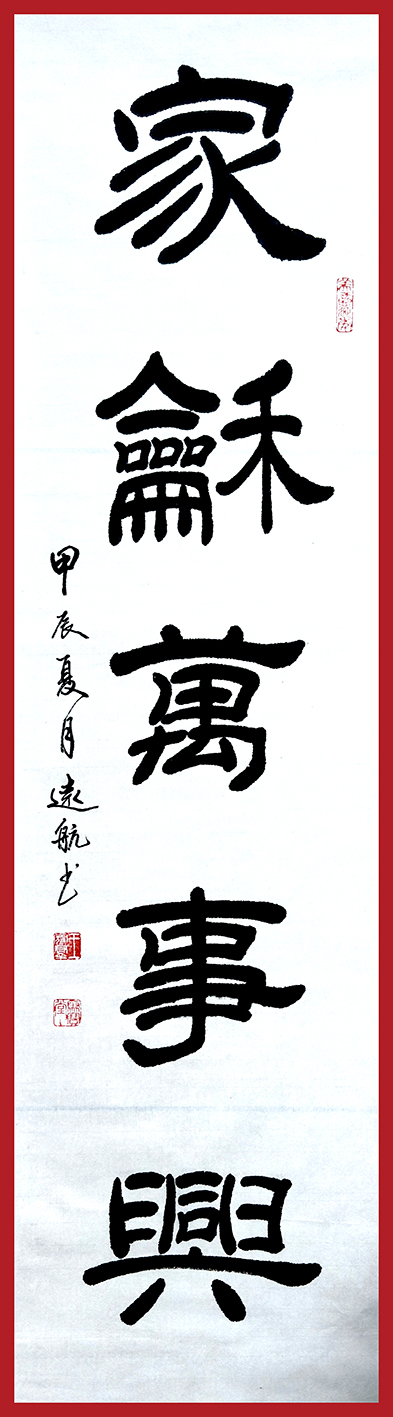 家龢萬事興
甲辰夏月遠航书